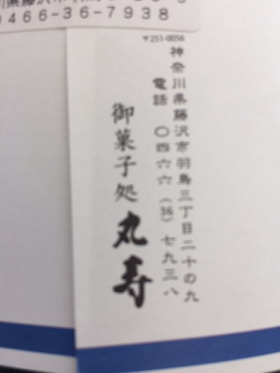 0466-36-7938
〒251-0056
神奈川県藤沢市羽鳥三丁目二十の九
電話 〇四六六(36)七九三八
御菓子処 丸寿